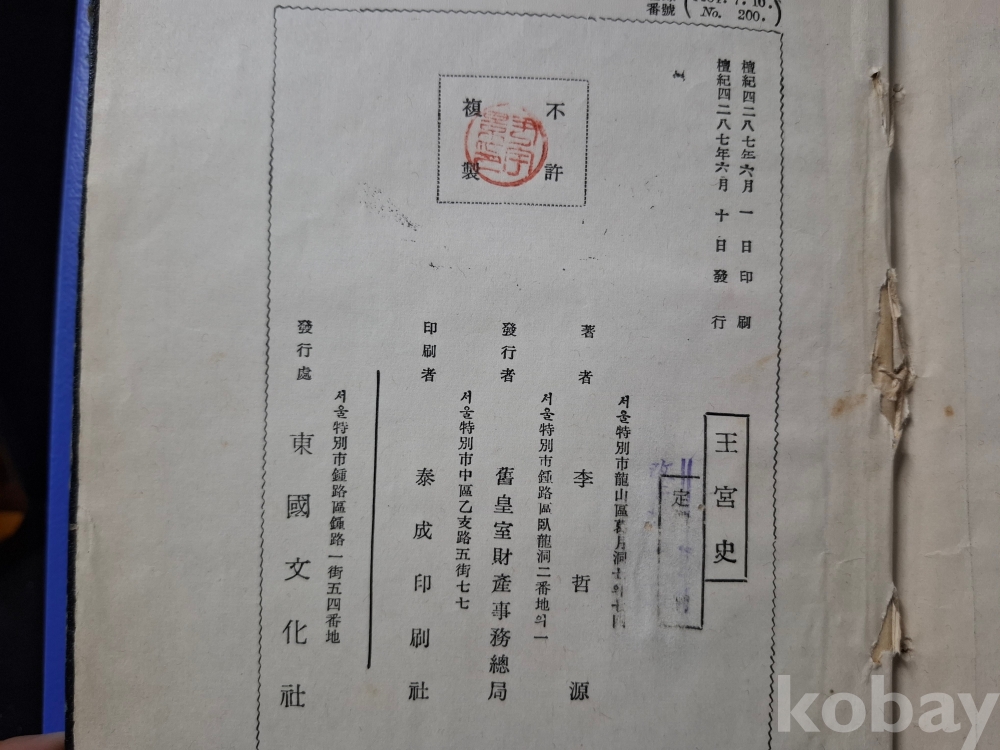 番號 No. 200.
檀紀四二八七年六月 一 日 印 刷
檀紀四二八七年六月 十 日 發 行
不許
複製
王宮史
定
서울特別市龍山區
著者 李哲源
서울特別市鍾路區臥龍洞二番地의一
發行者 舊皇室財產事務總局
서울特別市中區乙支路五街七七
印刷者 泰成印刷社
서울特別市鍾路區鍾路一街五四番地
發行處 東國文化社
kobay